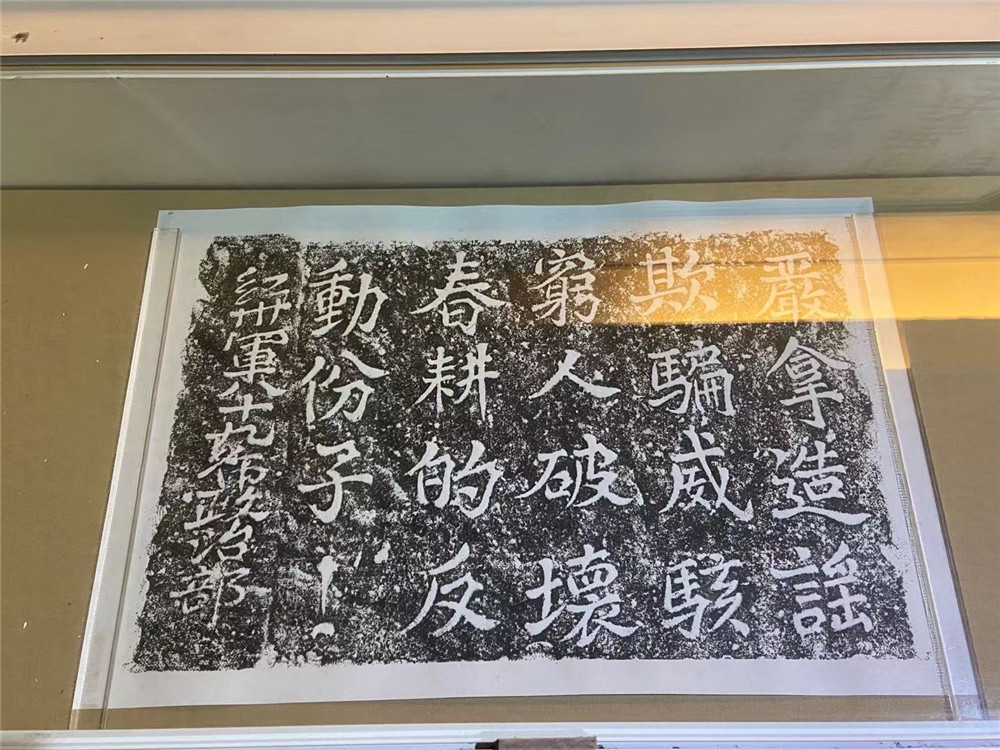 嚴拿造謡
欺騙威駭
窮人破壞
春耕的反
動份子！
红卅軍八十九师政治部